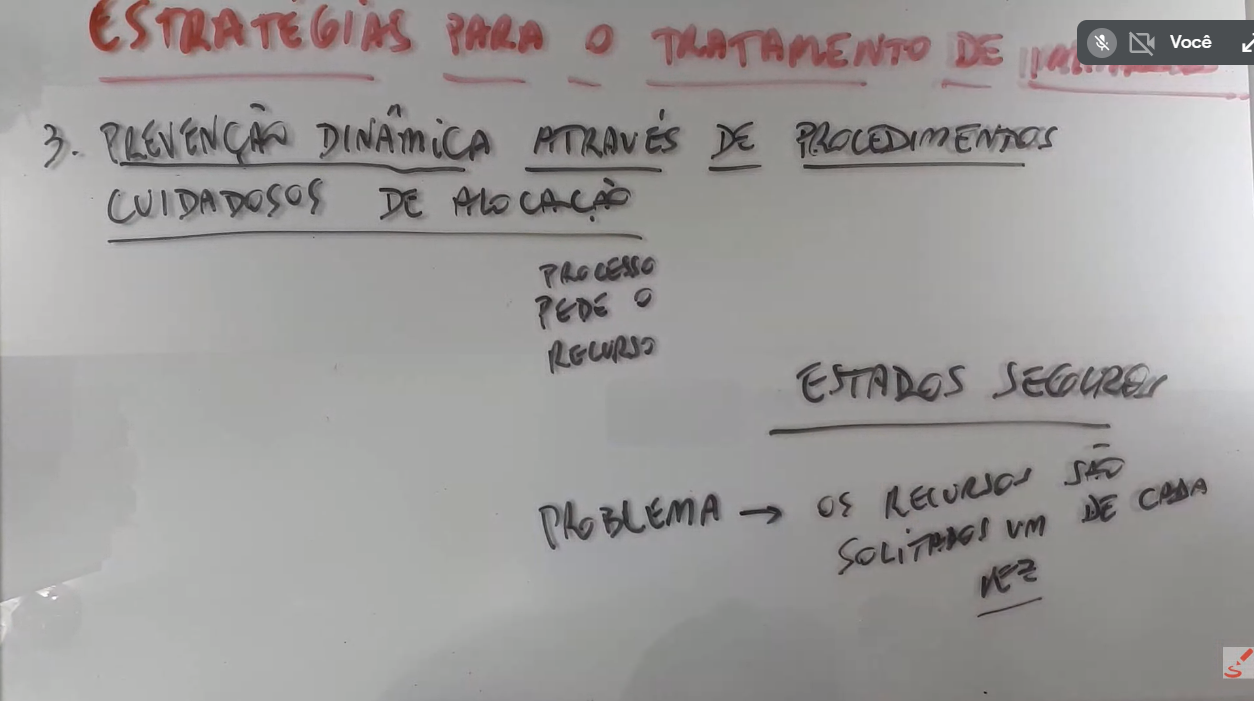 ESTRATÉGIAS PARA O TRATAMENTO DE
Você
3. PREVENÇÃO DINÂMICA ATRAVÉS DE PROCEDIMENTOS
CUIDADOSOS DE ALOCAÇÃO
PROCESSO
PEDE O
RECURSO
ESTADOS SEGUROS
PROBLEMA → OS RECURSOS SÃO
SOLITADOS UM DE CADA
VEZ